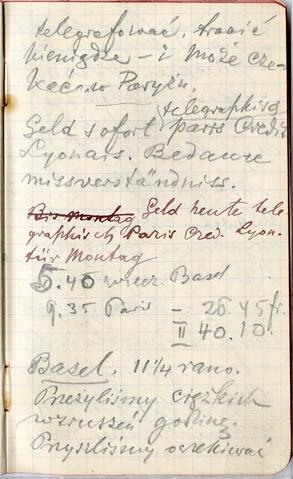 telegrafować, tracić
pieniądze – i może cze-
kać w Paryżu.
telegraphisch
Geld sofort paris Credit
Lyonais. Bedaure
missverständniss.
Bis Montag Geld heute tele-
graphisch Paris Cred. Lyon.
für Montag
5.40 wiecz. Basel
9.35 Paris – 26.45 fr.
II 40.10.
Basel. 11 1/4 rano.
Przeżyliśmy ciężkich
wzruszeń godzinę.
Przyszliśmy oczekiwać